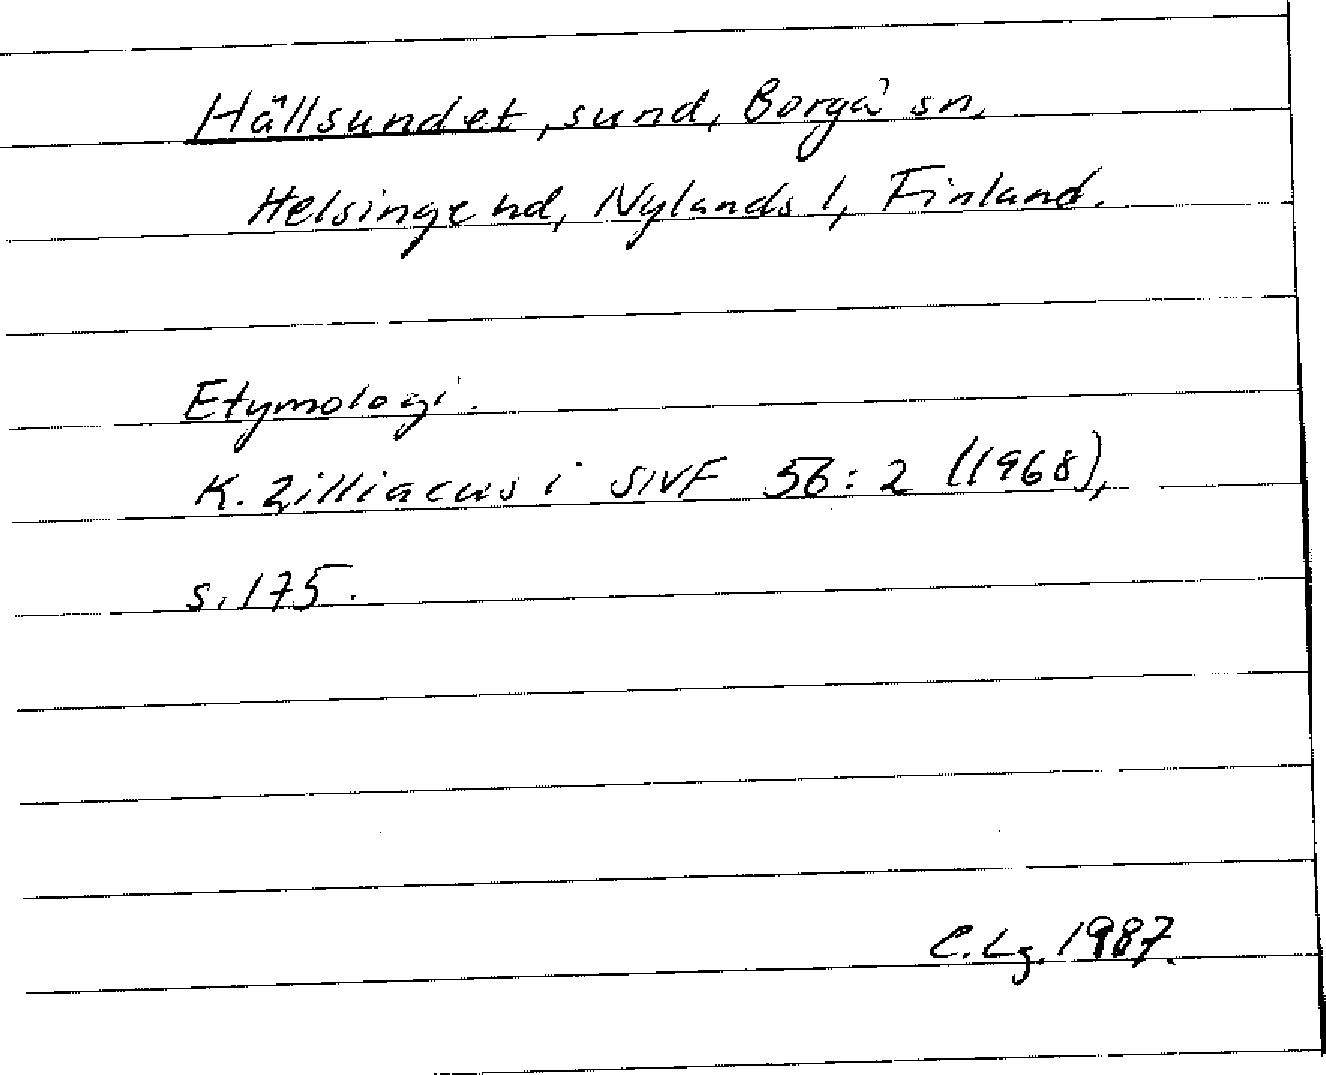 Hällsundet, sund, Borgå sn,
Helsinge hd, Nylands l, Finland.
Etymologi.
K. Zilliacus i SNF 56:2 (1968),
s. 175.
C. Lg. 1987.